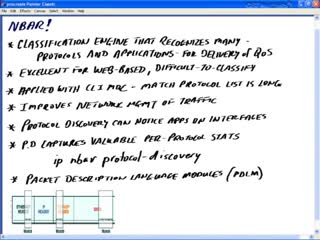 procreate Painter Classic
File Edit Effects Canvas Select Shapes Window Help
NBAR!
* CLASSIFICATION ENGINE THAT RECOGNIZES MANY -
PROTOCOLS AND APPLICATIONS - FOR DELIVERY OF QoS
* EXCELLENT FOR WEB-BASED, DIFFICULT-TO-CLASSIFY
* APPLIED WITH CLI MQC - MATCH PROTOCOL LIST IS LONG
* IMPROVES NETWORK MGMT OF TRAFFIC
* PROTOCOL DISCOVERY CAN NOTICE APPS ON INTERFACES
* P.D CAPTURES VALUABLE PER-PROTOCOL STATS
ip nbar protocol-discovery
* PACKET DESCRIPTION LANGUAGE MODULES (PDLM)